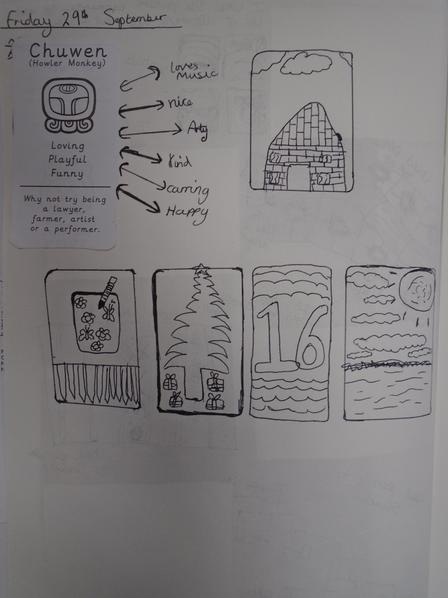 Friday 29th September
Chuwen
(Howler Monkey)
Loving
Playful
Funny
Why not try being
a lawyer,
farmer, artist
or a performer.
loves
Music
nice
Arty
Kind
carring
Happy
16